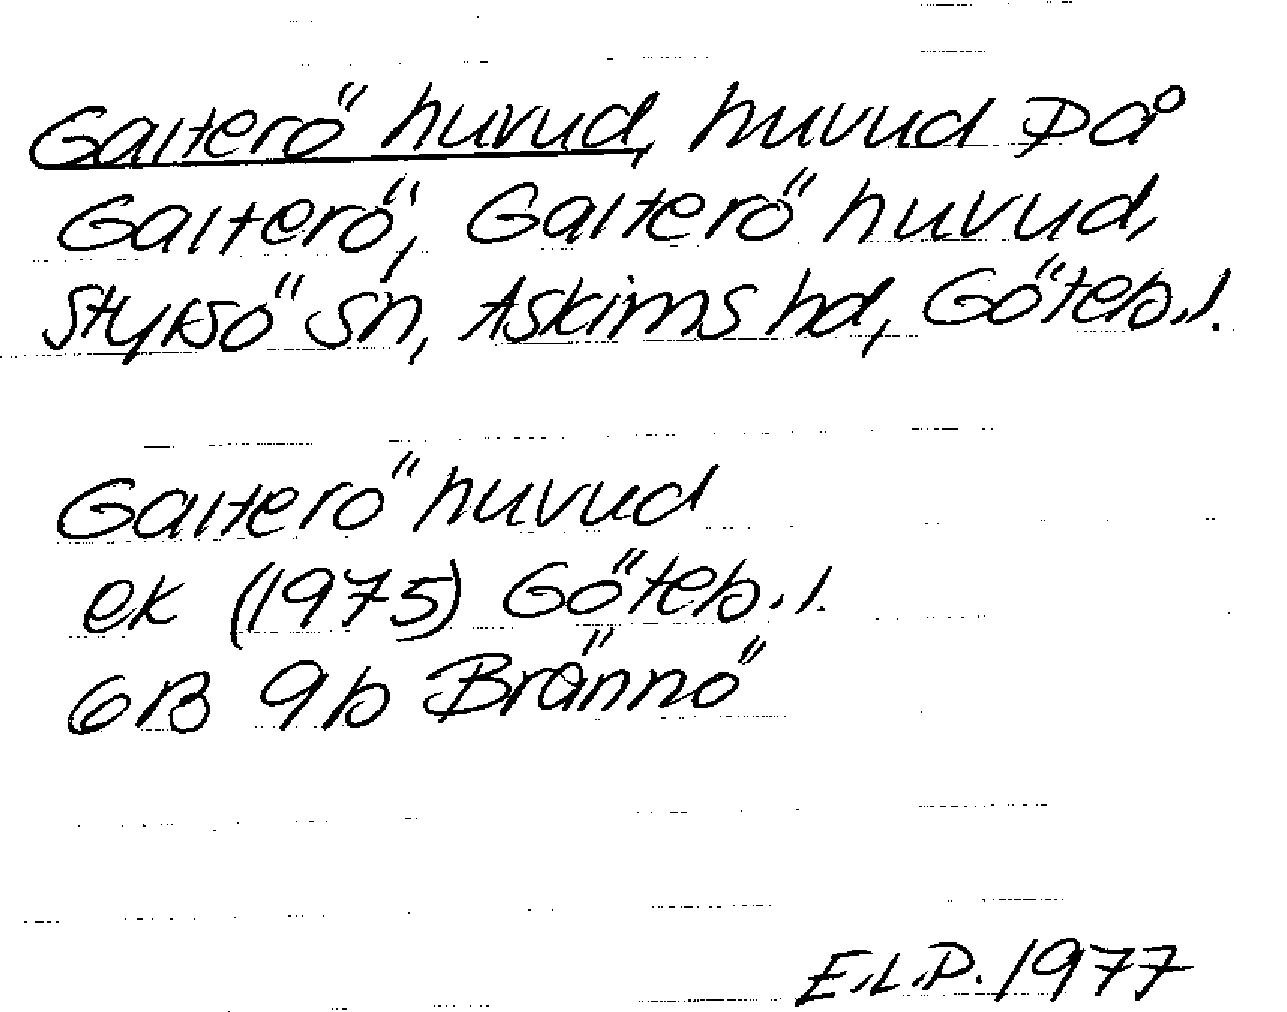 Galterö huvud, huvud på
Galterö, Galterö huvud,
Styrsö sn, Askims hd, Göteb.l.
Galterö huvud
ek (1975) Göteb.l.
6B 9b Brännö
E.L.P. 1977